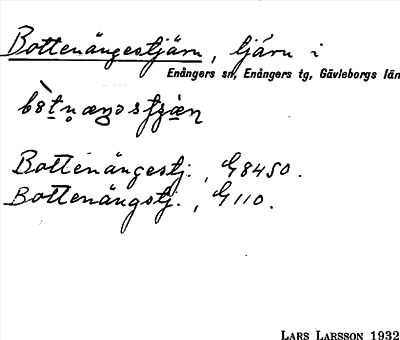 Bottenängestjärn, tjärn i
Enångers sn, Enångers tg, Gävleborgs län
Bottenängestj., G8450.
Bottenängstj., G110.
LARS LARSSON 1932